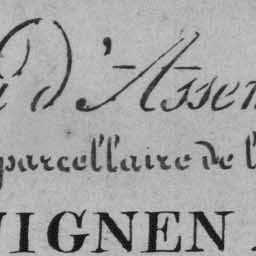 d'Assem
parcellaire de l
IGNEN